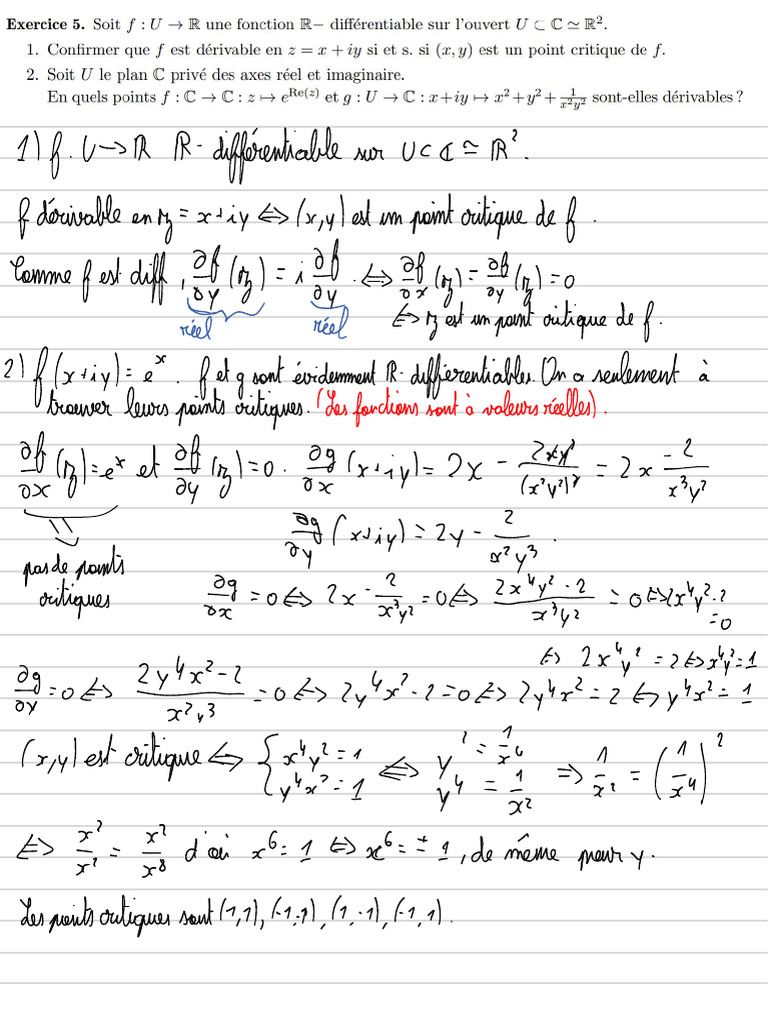 Exercice 5. Soit f : U → ℝ une fonction ℝ− différentiable sur l'ouvert U ⊂ ℂ ≃ ℝ².
1. Confirmer que f est dérivable en z = x + iy si et s. si (x, y) est un point critique de f.
2. Soit U le plan ℂ privé des axes réel et imaginaire.
En quels points f : ℂ → ℂ : z ↦ e^{Re(z)} et g : U → ℂ : x+iy ↦ x²+y²+ 1/(x²y²) sont-elles dérivables ?
1) f. U → ℝ ℝ- différentiable sur U ⊂ ℂ ≃ ℝ².
f dérivable en z = x+iy ⟺ (x,y) est un point critique de f.
Comme f est diff, ∂f/∂y (z) = i ∂f/∂y. ⟺ ∂f/∂x (z) = ∂f/∂y (z) = 0
réel réel ⟺ z est un point critique de f.
2) f(x+iy) = e^x. f et g sont évidemment ℝ-différentiables. On a seulement à
trouver leurs points critiques. (Les fonctions sont à valeurs réelles).
∂f/∂x (z) = e^x et ∂f/∂y (z) = 0. ∂g/∂x (x+iy) = 2x - 2xy²/(x²y²)² = 2x - 2/(x³y²)
∂g/∂y (x+iy) = 2y - 2/(x²y³).
pas de points critiques
∂g/∂x = 0 ⟺ 2x - 2/(x³y²) = 0 ⟺ (2x⁴y² - 2)/(x³y²) = 0 ⟺ 2x⁴y² - 2 = 0
⟺ 2x⁴y² = 2 ⟺ x⁴y² = 1
∂g/∂y = 0 ⟺ (2y⁴x² - 2)/(x²y³) = 0 ⟺ 2y⁴x² - 2 = 0 ⟺ 2y⁴x² = 2 ⟺ y⁴x² = 1
(x,y) est critique ⟺ { x⁴y² = 1 ; y⁴x² = 1 ⟺ y² = 1/x⁴ ; y⁴ = 1/x² ⟹ 1/x² = (1/x⁴)²
⟺ x²/x² = x²/x⁸ d'où x⁶ = 1 ⟺ x⁶ = ± 1, de même pour y.
Les points critiques sont (1,1), (-1,1), (1,-1), (-1,1).